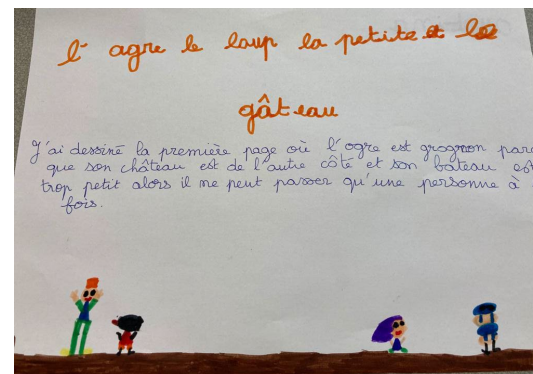 l'agre le loup la petite et le
gâteau
J'ai dessiné la première page où l'ogre est grognon parc
que son château est de l'autre côté et son bateau es
trop petit alors il ne peut passer qu'une personne à
fois.